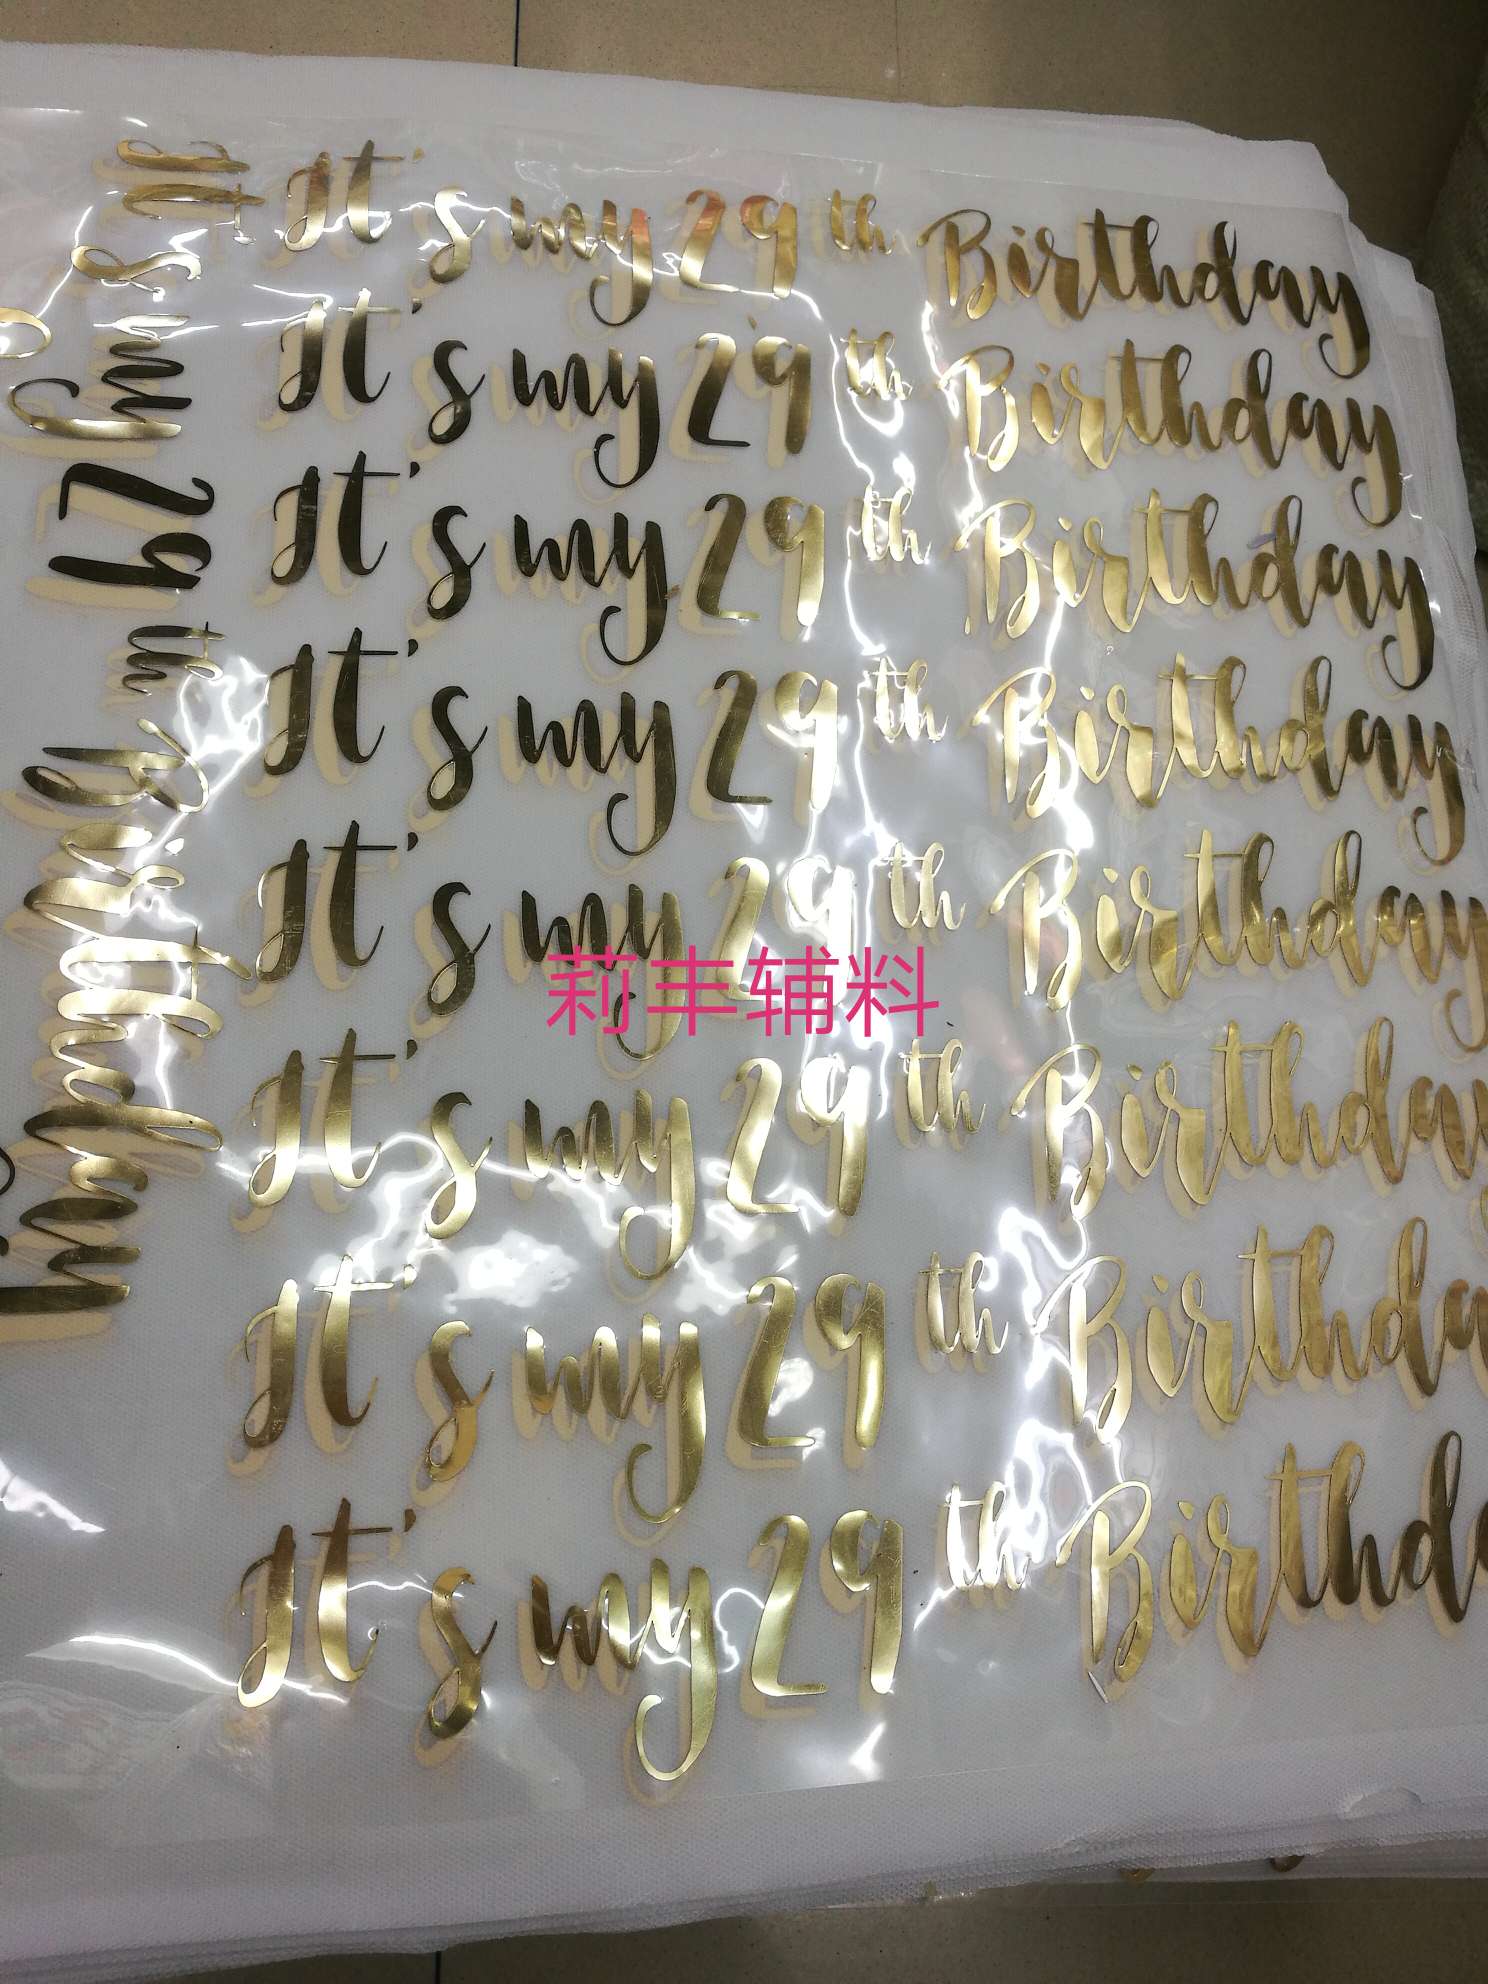 It's my 29th Birthday
It's my 29th Birthday
It's my 29th Birthday
It's my 29th Birthday
It's my 29th Birthday
It's my 29th Birthday
It's my 29th Birthda
It's my 29th Birthd
It's my 29th Birthday
莉丰辅料